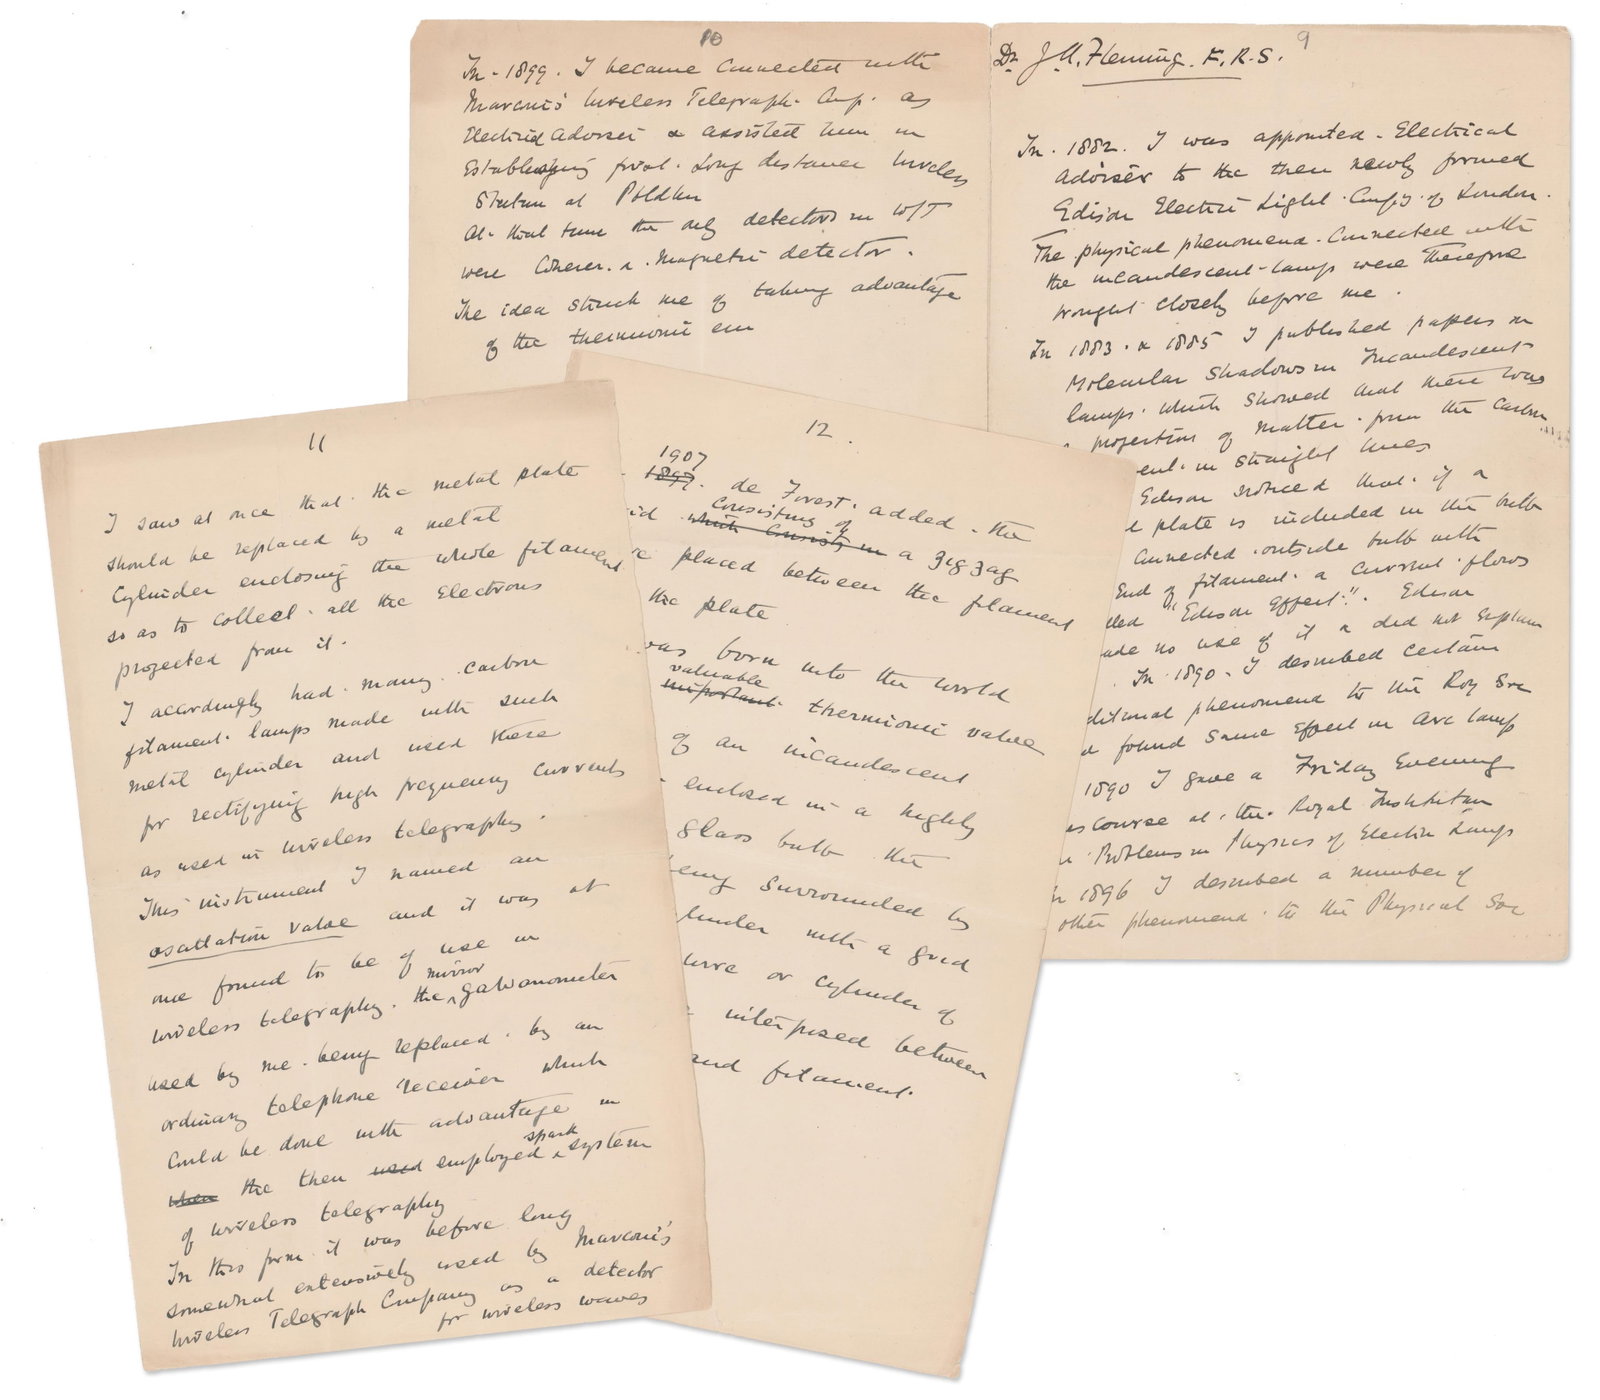 9
Dr J. A. Fleming. F.R.S.
In 1882. I was appointed Electrical
Adviser to the then newly formed
Edison Electric Light Compy of London.
The physical phenomena connected with
the incandescent lamps were therefore
brought closely before me.
In 1883 & 1885 I published papers on
Molecular Shadows in Incandescent
lamps which showed that there was
projection of matter from the carbon
ent in straight lines
Edison noticed that if a
l plate is included in the bulb
connected outside bulb with
End of filament a current flows
lled "Edison Effect". Edison
ade no use of it & did not explain
In 1890 I described certain
ditional phenomena to the Roy Soc
found same effect in arc lamp
1890 I gave a Friday Evening
iscourse at the Royal Institution
Problems in Physics of Electric Lamps
1896 I described a number of
other phenomena to the Physical Soc
10
In 1899. I became connected with
Marconi's Wireless Telegraph Comp. as
Electrical Adviser & assisted him in
Establishing first long distance wireless
Station at Poldhu
At that time the only detectors in W/T
were Coherer & Magnetic detector.
The idea struck me of taking advantage
of the thermionic em
11
I saw at once that the metal plate
should be replaced by a metal
cylinder enclosing the whole filament
so as to collect all the Electrons
projected from it.
I accordingly had many carbon
filament lamps made with such
metal cylinder and used these
for rectifying high frequency currents
as used in wireless telegraphy.
This instrument I named an
oscillation valve and it was at
once found to be of use in
wireless telegraphy. the mirror galvanometer
used by me being replaced by an
ordinary telephone receiver which
could be done with advantage in
when the then used employed spark system
of wireless telegraphy
In this form it was before long
somewhat extensively used by Marconi's
Wireless Telegraph Company as a detector
for wireless waves
12.
1907
1897. de Forest added the
consisting of
id which consists in a zig zag
placed between the filament
the plate
was born into the world
valuable
important thermionic valve
of an incandescent
enclosed in a highly
glass bulb the
being surrounded by
linder with a grid
wire or cylinder of
interposed between
and filament.